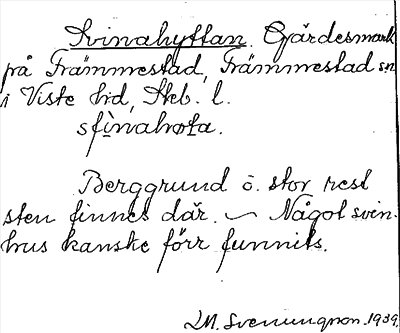 Svinahyttan. Gärdesmark
på Främmestad, Främmestad sn
i Viste hd, Skb. l.
sfinahøta.
Berggrund o. stor rest
sten finnes där. — Något svin-
hus kanske förr funnits.
M. Svenungson. 1939.